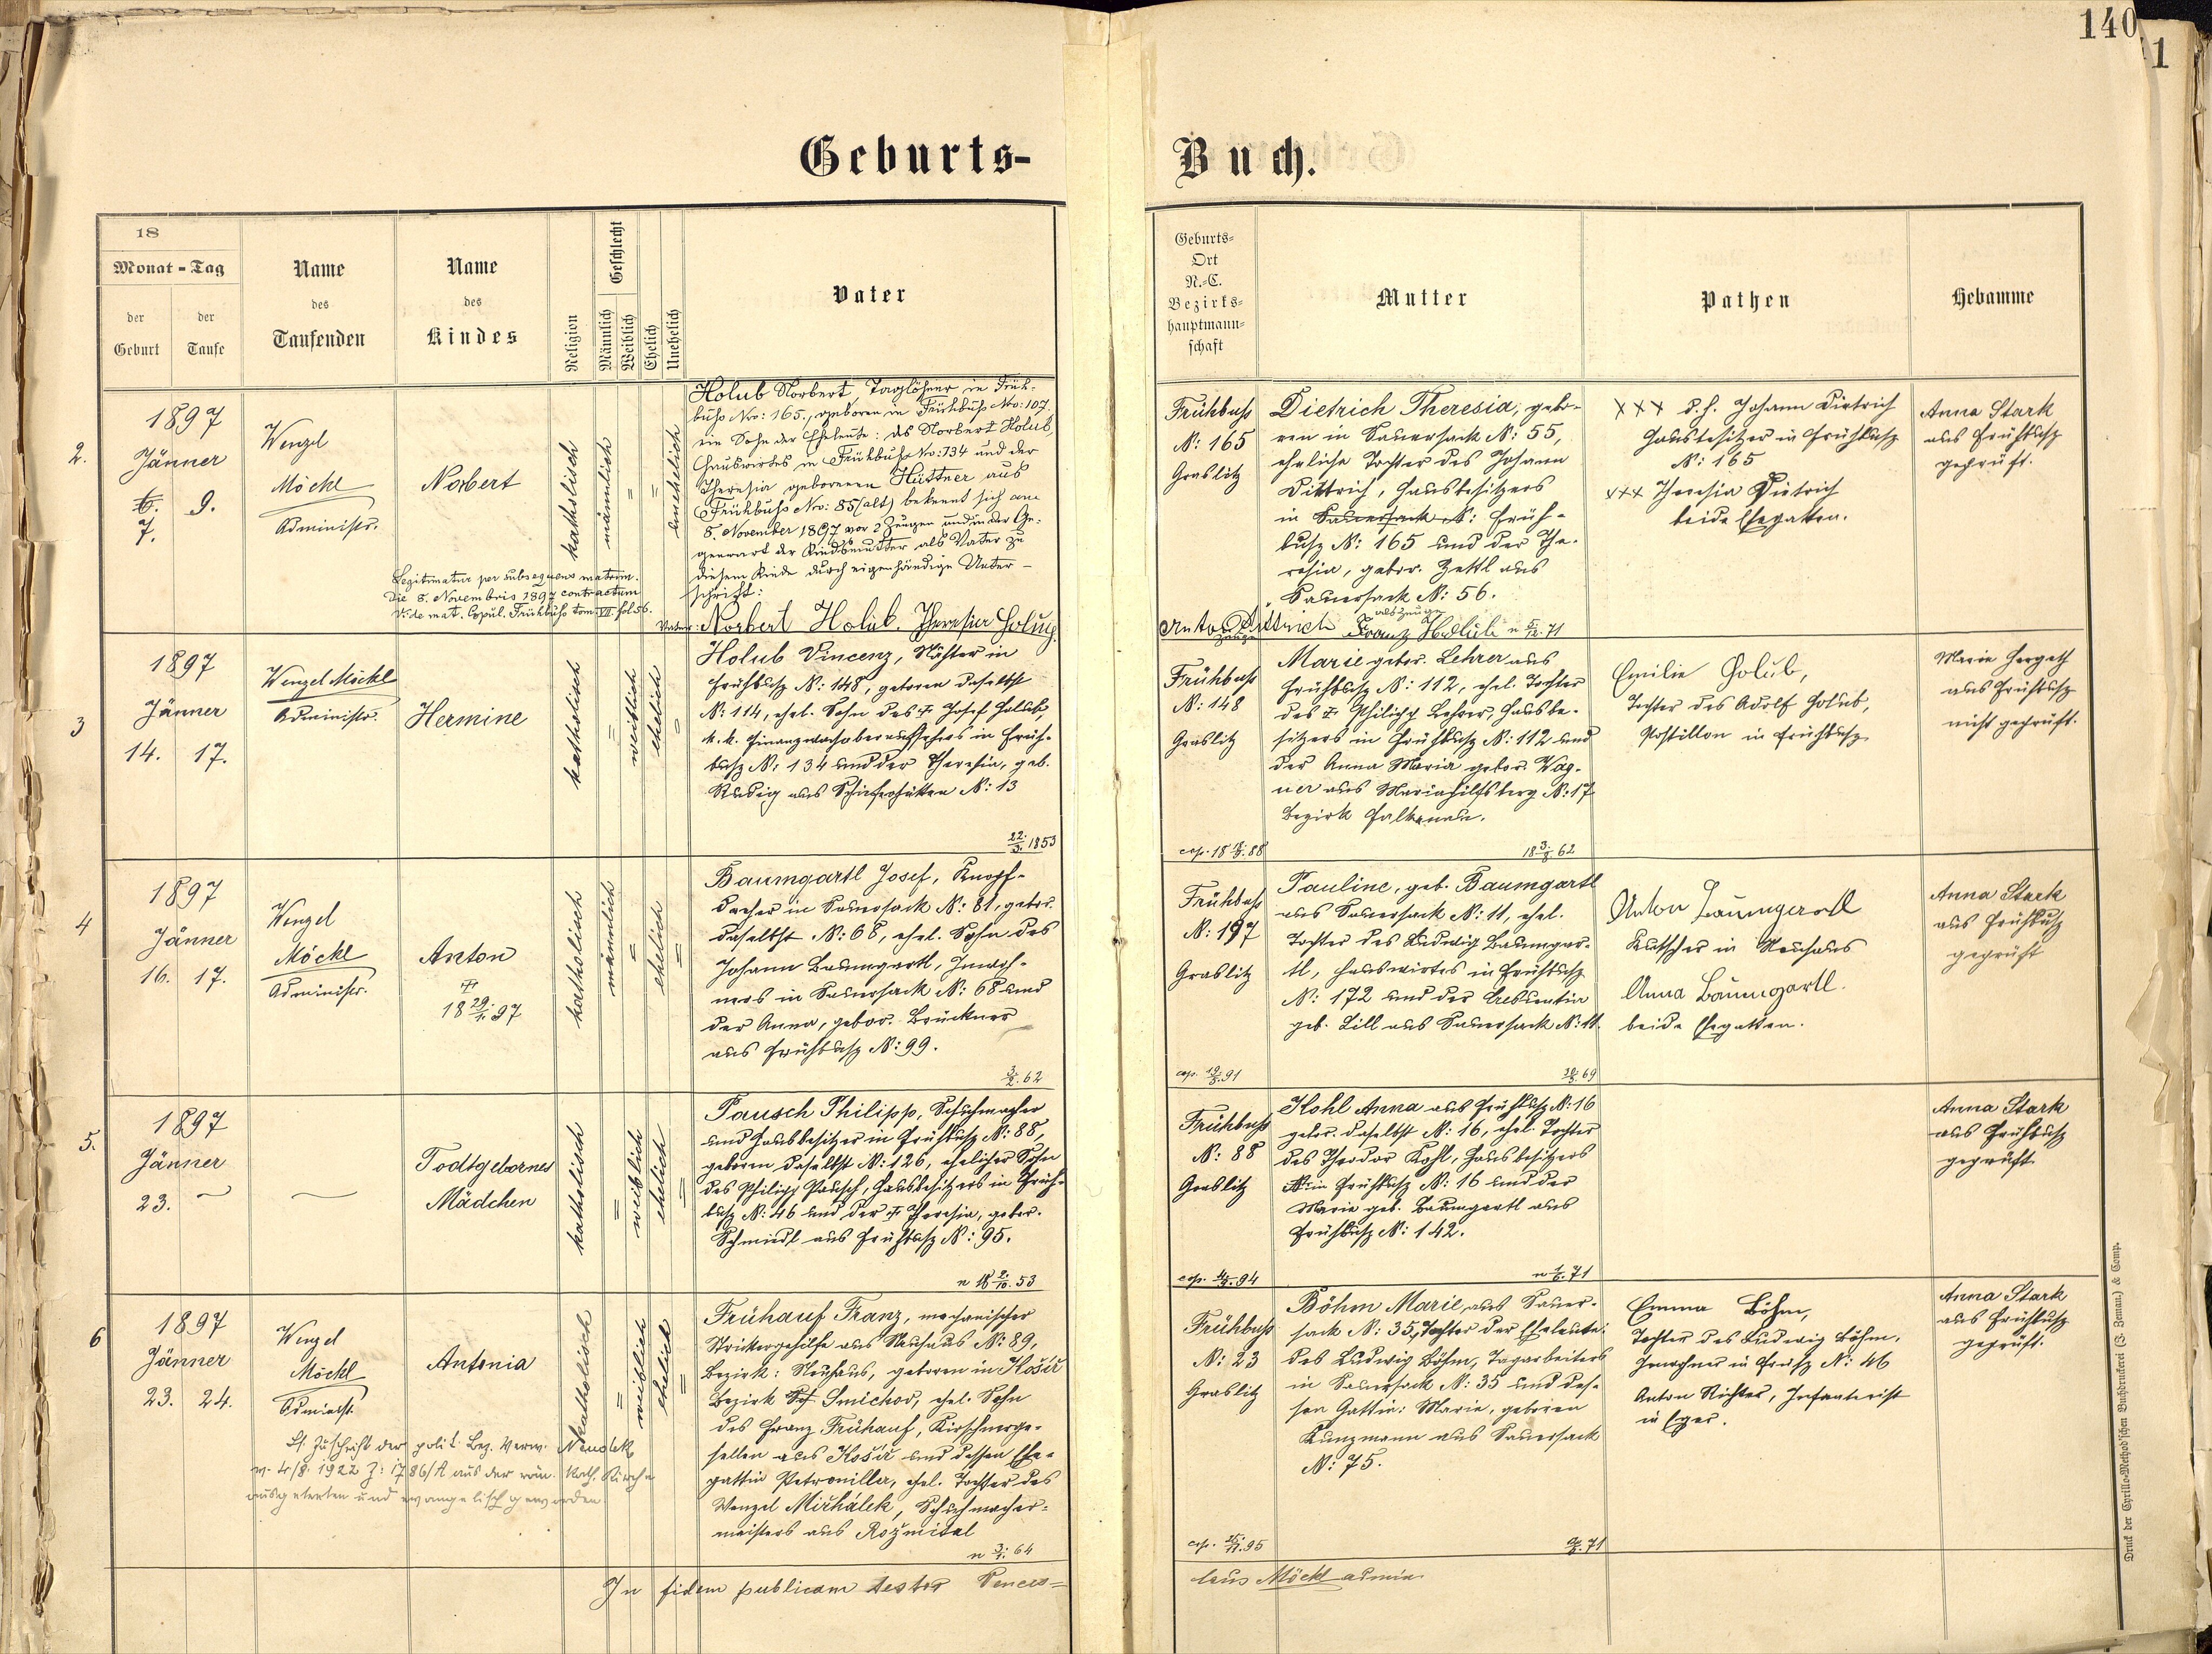 140
1
Geburts-
Buch.
18
Monat - Tag
der Geburt
der Taufe
Name des Taufenden
Name des Kindes
Religion
Geschlecht
Männlich
Weiblich
Ehelich
Unehelich
Vater
Geburts-
Ort
N.-C.
Bezirks-
hauptmann-
schaft
Mutter
Pathen
Hebamme
2.
1897
Jänner
6. 9.
7.
Wenzel
Möckl
Administr.
Norbert
Legitimatur per subsequens matrim.
die 8. Novembris 1897 contractum
Vide mat. Copul. Frühbuß tom. VII fol. 56.
katholisch
männlich
=
=
unehelich
Holub Norbert, Taglöhner in Früh-
buß Nro: 165., geboren in Frühbuß Nro: 107.
ein Sohn der Eheleute: des Norbert Holub,
Hauswirtes in Frühbuß Nro: 134 und der
Theresia geborenen Hüttner aus
Frühbuß Nro: 85 (alt) bekennt sich am
8. November 1897 vor 2 Zeugen und in der Ge-
genwart der Kindsmutter als Vater zu
diesem Kinde durch eigenhändige Unter-
schrift:
Vater: Norbert Holub. Theresia Holub
Frühbuß
N: 165
Graslitz
Dietrich Theresia, gebo-
ren in Sauersack N: 55,
eheliche Tochter des Johann
Dittrich, Hausbesitzers
in Sauersack N: Früh-
buß N: 165 und der The-
resia, gebor. Zettl aus
Sauersack N: 56.
Anton Dittrich
Zeuge
als Zeuge
Franz Hollub
71
XXX d. h. Johann Dietrich
Hausbesitzer in Frühbuß
N: 165
XXX Theresia Dietrich
beide Ehegatten.
Anna Stark
aus Frühbuß
geprüft.
3
1897
Jänner
14. 17.
Wenzel Möckl
Administr.
Hermine
katholisch
=
weiblich
ehelich
=
Holub Vincenz, in
Frühbuß N: 148, geboren daselbst
N: 114, ehel. Sohn des † Josef Holub,
k. k. Finanzwachoberaufsehers in Früh-
buß N: 134 und der Theresia, geb.
Rudig aus Schieferhütten N: 13
22/3. 1853
Frühbuß
N: 148
Graslitz
Marie gebor. Lehrer aus
Frühbuß N: 112, ehel. Tochter
des † Philipp Lehrer, Hausbe-
sitzers in Frühbuß N: 112 und
der Anna Maria gebor. Wag-
ner aus Mariahilfsberg N: 17
Bezirk Falkenau.
62
Emilie Holub,
Tochter des Adolf Holub,
Postillon in Frühbuß
Marie Hergeth
aus Frühbuß
nicht geprüft.
4
1897
Jänner
16. 17.
Wenzel
Möckl
Administr.
Anton
†
18 29/1. 97
katholisch
männlich
=
ehelich
=
Baumgartl Josef, Knopf-
dreher in Sauersack N: 81, gebor.
daselbst N: 68, ehel. Sohn des
Johann Baumgartl, Inwoh-
ners in Sauersack N: 68 und
der Anna, gebor. Brückner
aus Frühbuß N: 99.
3/2. 62
Frühbuß
N: 197
Graslitz
cop. 19/5. 91
Pauline, geb. Baumgartl
aus Sauersack N: 11, ehel.
Tochter des Ludwig Baumgar-
tl, Hauswirtes in Frühbuß
N: 172 und der Creszentia
geb. Lill aus Sauersack N: 11.
69
Anton Baumgartl
Kutscher in Neuhaus
Anna Baumgartl.
beide Ehegatten.
Anna Stark
aus Frühbuß
geprüft
5.
1897
Jänner
23.
Todtgebornes
Mädchen
katholisch
=
weiblich
ehelich
=
Pausch Philipp, Schuhmacher
und Hausbesitzer in Frühbuß N: 88,
geboren daselbst N: 126, ehelicher Sohn
des Philipp Pausch, Hausbesitzers in Früh-
buß N: 46 und der † Theresia, gebor.
Schmiedl aus Frühbuß N: 95.
n 18 2/10. 53
Frühbuß
N: 88
Graslitz
Kohl Anna aus Frühbuß N: 16
gebor. daselbst N: 16, ehel. Tochter
des Theodor Kohl, Hausbesitzers
in Frühbuß N: 16 und der
Marie geb. Baumgartl aus
Frühbuß N: 142.
71
Anna Stark
aus Frühbuß
geprüft
6
1897
Jänner
23. 24.
Wenzel
Möckl
Administ.
Antonia
katholisch
=
weiblich
ehelich
=
Lt. Zuschrift der polit. Bez. Verw. Neudek
v. 4/8. 1922 Z: 1786/A aus der röm. kath. Kirche
ausgetreten und evangelisch geworden.
Frühauf Franz, mechanischer
Strickergehilfe aus Neuhaus N: 89,
Bezirk: Neuhaus, geboren in Košíř
Bezirk Smichov, ehel. Sohn
des Franz Frühauf, Kirschnerge-
sellen aus Košíř und dessen Ehe-
gattin Petronilla, ehel. Tochter des
Wenzel Miřhálek, Schuhmacher-
meisters aus Rožmital
n 3/1. 64
Frühbuß
N: 23
Graslitz
cop. 25/11. 95
Böhm Marie, aus Sauer-
sack N: 35, Tochter der Eheleute:
des Ludwig Böhm, Tagarbeiters
in Sauersack N: 35 und des-
sen Gattin: Marie, geboren
Kunzmann aus Sauersack
N: 75.
71
Emma Böhm,
Tochter des Ludwig Böhm,
Inwohner in N: 46
Anton Richter, Infanterist
in Eger.
Anna Stark
aus Frühbuß
geprüft.
In fidem publicam testor Vences-
laus Möckl admin.
Druck der Cyrillo-Method'schen Buchdruckerei (J. Zeman) & Comp.